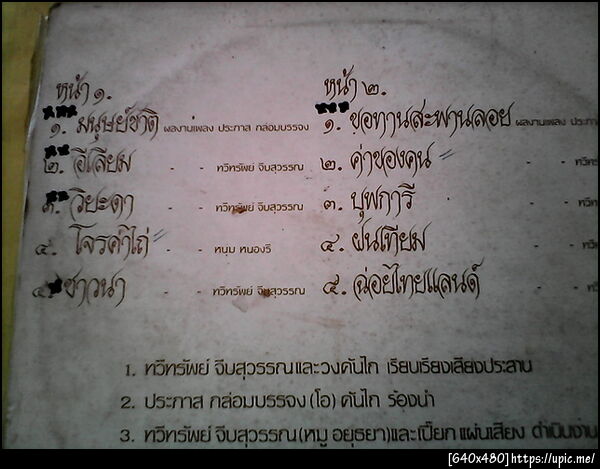 หน้า ๑. หน้า ๒.
๑. มนุษย์ชาติ ผลงานเพลง ประภาส กล่อมบรรจง ๑. ขอทานสะพานลอย ผลงานเพลง
๒. อีเลียม - - ทวีทรัพย์ จีบสุวรรณ ๒. ค่าของคน -
๓. วิยะดา - - ทวีทรัพย์ จีบสุวรรณ ๓. บุพการี -
๔. โจรค้าไถ่ - - หนุ่ม หนองรี ๔. ฝนเทียม -
๕. ชาวนา - - ทวีทรัพย์ จีบสุวรรณ ๕. ฉ่อยไทยแลนด์ -
1. ทวีทรัพย์ จีบสุวรรณและวงคันไถ เรียบเรียงเสียงประสาน
2. ประภาส กล่อมบรรจง (โอ) คันไถ ร้องนำ
3. ทวีทรัพย์ จีบสุวรรณ (หมู อยุธยา) และเปี๊ยก แผ่นเสียง ดำเนินงาน
[640x480] https://upic.me/